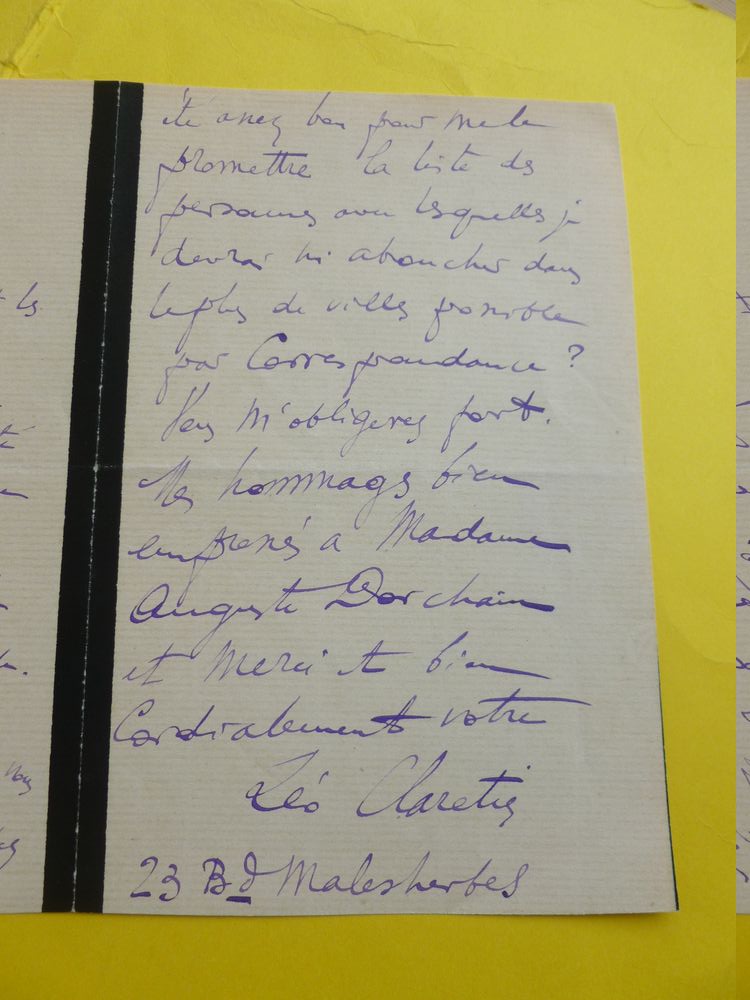 été assez bon pour me le
promettre la liste des
personnes avec lesquelles je
devrai m'aboucher dans
le plus de villes possible
par Correspondance ?
Vous m'obligerez fort.
Mes hommages bien
empressés a Madame
Auguste Dorchain
et Merci et bien
Cordialement votre
Léo Claretie
23 Bd Malesherbes